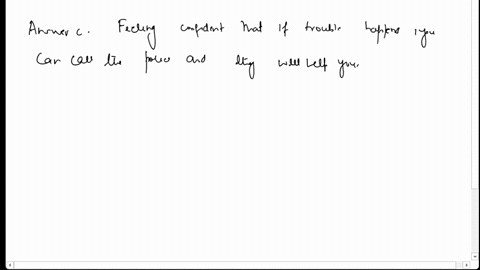 Answer c. Feeling confident that if trouble happens, you
can call the police and they will help you.